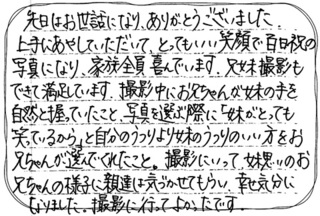 先日はお世話になり、ありがとうございました。
上手にあやしていただいて、とってもいい笑顔で百日祝の
写真になり、家族全員喜んでいます。兄妹撮影も
できて満足しています。撮影中にお兄ちゃんが妹の手を
自然と握っていたこと、写真を選ぶ際に「妹がとっても
笑ているから」と自分のうつりより妹のうつりのいい方をお
兄ちゃんが選んでくれたこと。撮影にいって、妹思いのお
兄ちゃんの様子に親達は気づかせてもらい、幸せ気分に
なりました。撮影に行ってよかったです。